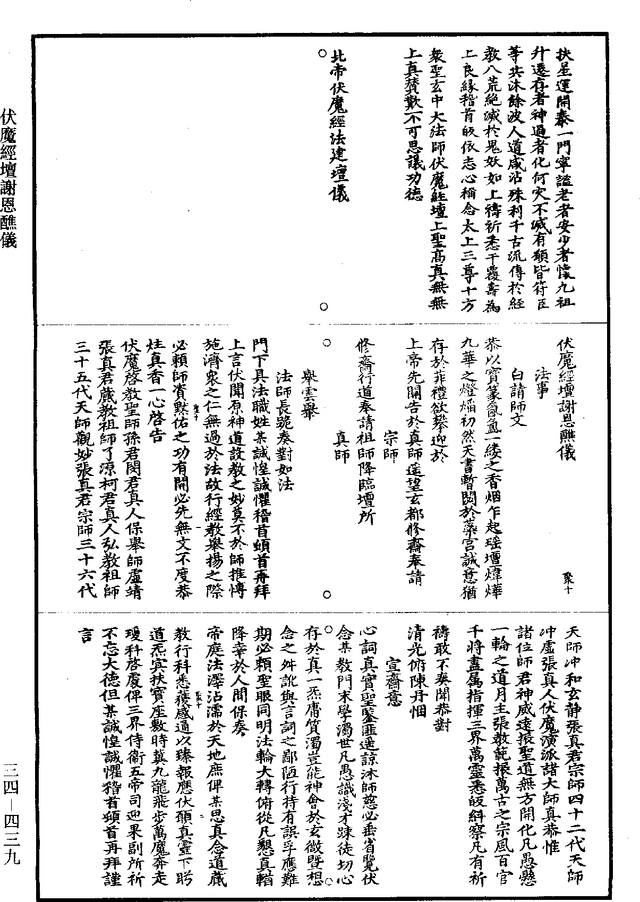 扶呈運開泰一門寧謐老者安少者懷九祖
升遷存者神過者化何灾不滅有願皆符臣
等共沐餘波人道咸沾殊利千古流傳於經
教八荒絶滅於鬼妖如上禱祈悉干覆燾為
上良緣稽首皈依志心稱念太上三尊十方
衆聖玄中大法師伏魔經壇上聖高真無無
上真賛歎不可思議功徳
北帝伏魔經法建壇儀
伏魔經壇謝恩醮儀
聚十
法事
白請師文
恭以寶篆氤氲一綫之香烟乍起瑶壇煒燁
九華之燈熖初然天書暫閱於蘂宫誠意猶
存於菲禮欲攀迎於
上帝先關告於真師遥望玄都修齋奉請
宗師
真師
修齋行道奉請祖師降臨壇所
舉雲輿
法師長跪奏對如法
門下具法職姓某誠惶誠懼稽首頓首再拜
上言伏聞原神道設教之妙莫不於師推愽
施濟衆之仁無過於法故行經教舉揚之際
必頼師資黙佑之功有開必先無文不度恭
炷真香一心啓告
伏魔啓教聖師孫君閔君真人保舉師虚靖
張真君嚴教祖師了源柯君真人弘教祖師
三十五代天師觀妙張真君宗師三十六代
天師冲和玄静張真君宗師四十二代天師
冲虚張真人伏魔演派諸大師真恭惟
諸位師君神威遠振聖道無方開化凡愚懸
一輪之道月主張教範振萬古之宗風百官
千將盡属指揮三界萬靈悉皈糾察凡有祈
禱敢不奏聞恭對
清光俯陳丹悃
宣齋意
心詞真實聖鑒匪遥諒沐師慈必垂省覽伏
念某教門末學濁世凡愚識淺才踈徒切心
存於真一炁膚質濁豈能神會於玄微暨想
念之舛訛與言詞之鄙陋行持有誤孚應難
期必頼聖眼同明法輪大轉俯從凡懇真輶
降幸於人間保奏
帝庭法澤沾濡於天地庶俾某思真念道蕆
教行科悉獲感通以臻報應伏願真靈下盻
道炁賓扶寶座數時蓂九龍飛步萬魔奔走
瓊科啓處俾三界侍衞五帝司迎果副所祈
不忘大徳但某誠惶誠懼稽首頓首再拜謹
言
伏魔經壇謝恩醮儀
三四—四三九